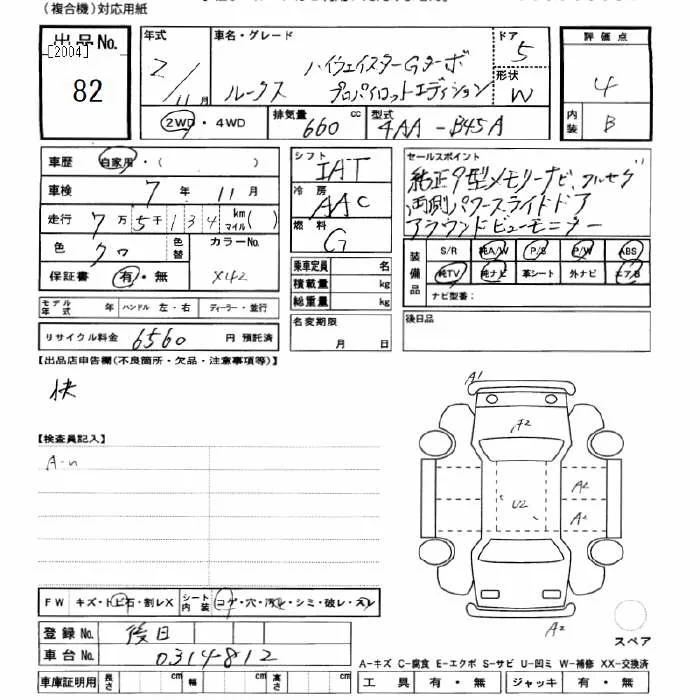 (複合機)対応用紙
出品No.
[2004]
82
年式 2 / 11月
車名・グレード ハイウェイスターGターボ
ルークス プロパイロットエディション
ドア 5
形状 W
評価点
4
内装 B
2WD・4WD
排気量 660 cc
型式 4AA-B45A
車歴 自家用・( )
車検 7年 11月
走行 7万5千134 km マイル( )
色 クロ 色替 カラーNo. X42
保証書 有・無
モデル年式 年 ハンドル 左・右 ディーラー・並行
リサイクル料金 6560 円 預託済
シフト IAT
冷房 AAC
燃料 G
乗車定員 名
積載量 kg
総重量 kg
名変期限
月 日
セールスポイント
純正9型メモリーナビ、フルセグ
両側パワースライドドア
アラウンドビューモニター
装備品 S/R 純A/W P/S P/W ABS
純TV 純ナビ 革シート 外ナビ エアB
ナビ型番:
後日品
【出品店申告欄(不良箇所・欠品・注意事項等)】
【検査員記入】
A-n
A1
F2
U2
A2
A2
A2
FW キズ・トビ石・割レX シート内装 コゲ・穴・汚レ・シミ・破レ・スレ
登録No. 後日
車台No. 0314812
車庫証明用 長さ cm 幅 cm 高さ cm
スペア
A-キズ C-腐食 E-エクボ S-サビ U-凹ミ W-補修 XX-交換済
工具 有・無 ジャッキ 有・無